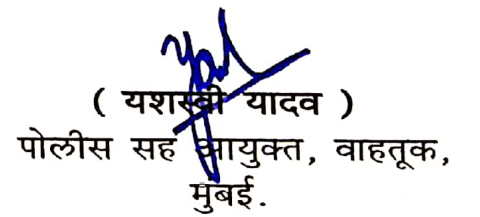 ( यशस्वी यादव )
पोलीस सह आयुक्त, वाहतूक,
मुंबई.